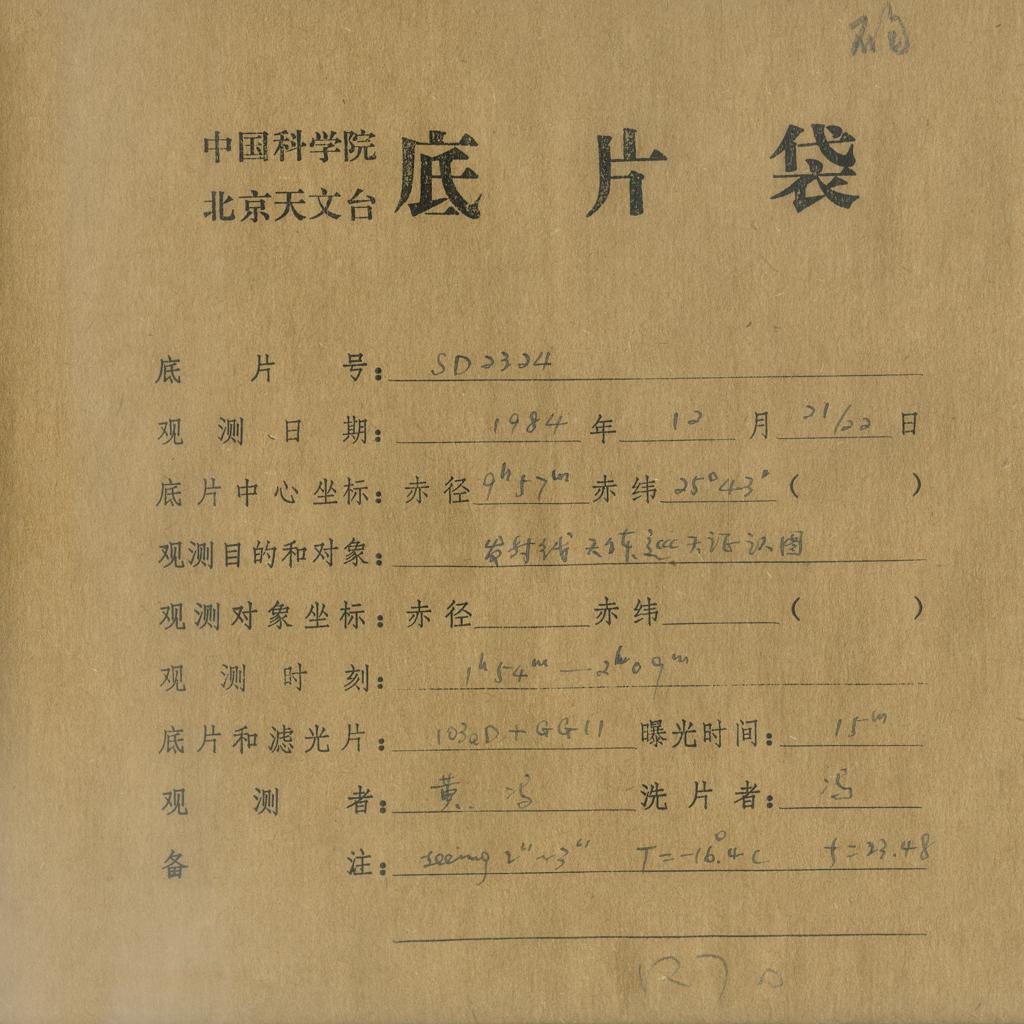 确
中国科学院
北京天文台
底片袋
底片号：SD2324
观测日期：1984年12月21/22日
底片中心坐标：赤径9h57m赤纬25°43'（ ）
观测目的和对象：发射线天体 天证认图
观测对象坐标：赤径 赤纬 （ ）
观测时刻：1h54m—2h09m
底片和滤光片：103aD+GG11 曝光时间：15m
观测者：黄 冯 洗片者：冯
备注：seeing 2"~3" T=-16°.4C f=23.48